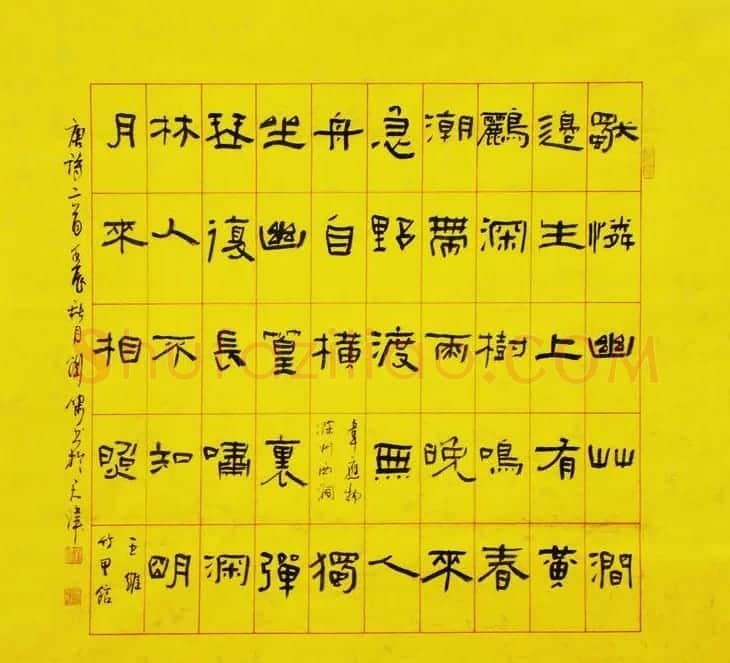 獨憐幽艸澗
邊生上有黃
鸝深樹鳴春
潮帶雨晚來
急野渡無人
舟自橫
韋應物
滁州西澗
獨
坐幽篁裏彈
琴復長嘯深
林人不知明
月來相照
王維
竹里館
唐詩二首壬辰秋月書於天津
Shufaziliao.COM